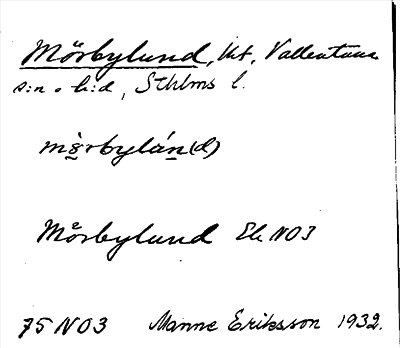 Mörbylund, kt, Vallentuna
s:n o h:d, Sthlms l.
mö̀rbylán(d)
Mörbylund Ek NO3
75 NO3 Manne Eriksson 1932.